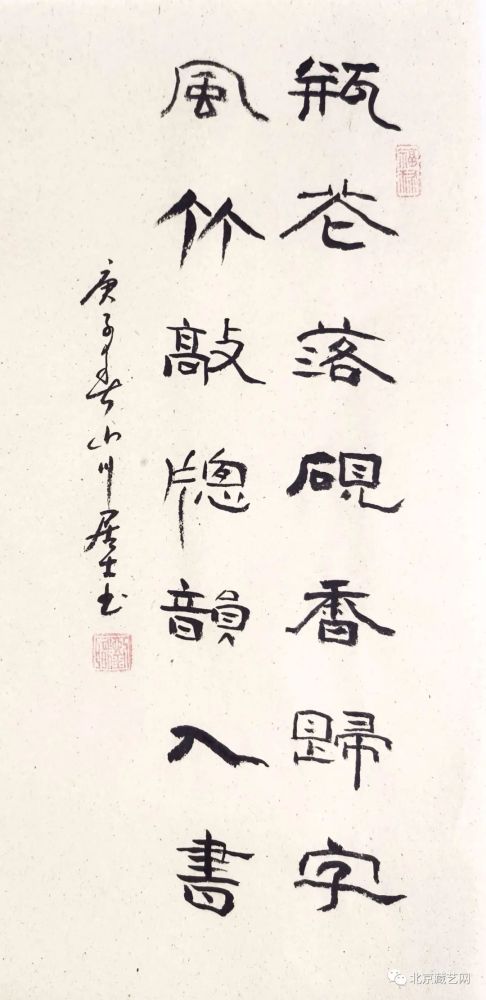 瓶花落硯香歸字
風竹敲牕韻入書
庚子春 山川居士书
北京藏艺网